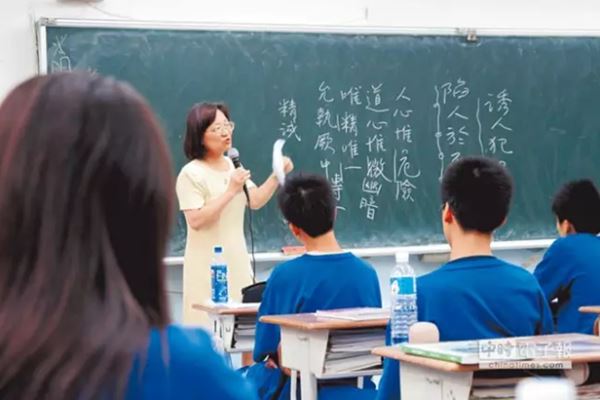 誘人犯
陷人於
人心惟危險
道心惟微幽暗
唯精唯一
允執厥中
精誠
中時電子報
chinatimes.com